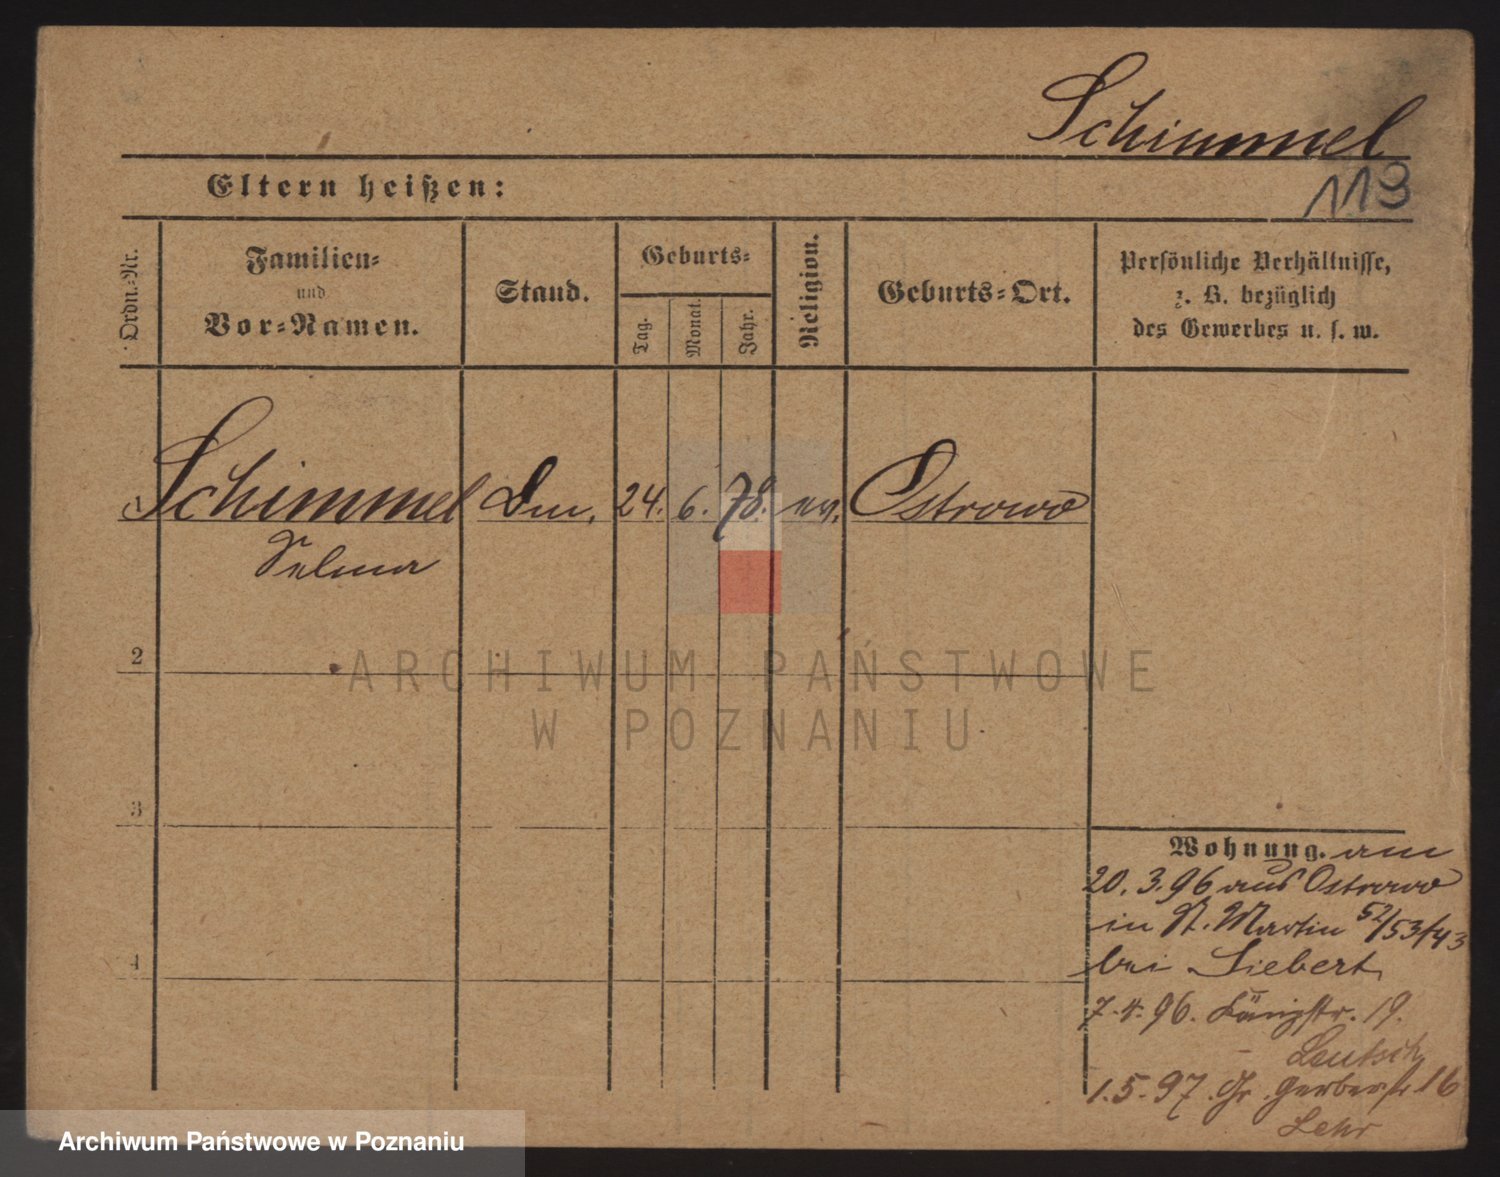 Schimmel
Eltern heißen:
113
Ordn.-Nr.
Familien-
und
Vor-Namen.
Stand.
Geburts-
Tag.
Monat.
Jahr.
Religion.
Geburts-Ort.
Persönliche Verhältnisse,
z. B. bezüglich
des Gewerbes u. s. w.
1 Schimmel 24. 6. 78. ev. Ostrowo
Selma
2
3
4
Wohnung. am
20. 3. 96 aus Ostrowo
in St. Martin 52/53/43
bei Siebert
7. 4. 96. Königstr. 19.
Leutsch
1. 5. 97. Gr. Gerberstr 16
Lehr
ARCHIWUM PAŃSTWOWE
W POZNANIU
Archiwum Państwowe w Poznaniu